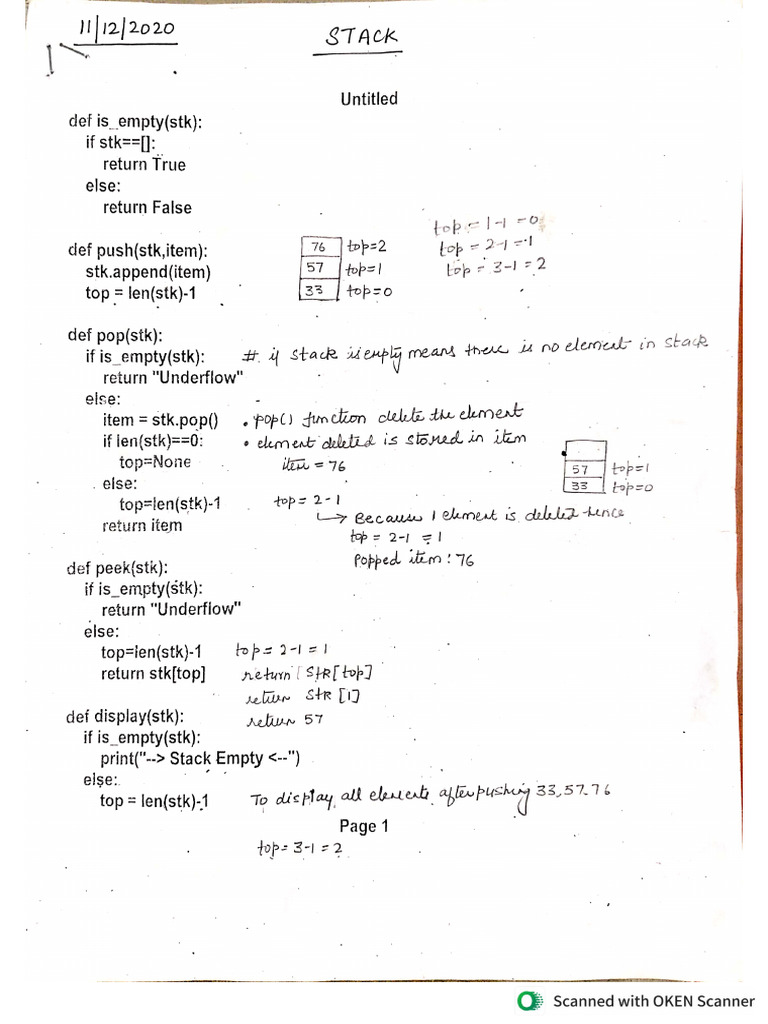 11/12/2020
STACK
Untitled
def is_empty(stk):
if stk==[]:
return True
else:
return False
top = 1-1 = 0
def push(stk,item):
76 top=2
top = 2-1 = 1
stk.append(item)
57 top=1
top = 3-1 = 2
top = len(stk)-1
33 top=0
def pop(stk):
if is_empty(stk): # if stack is empty means there is no element in stack
return "Underflow"
else:
item = stk.pop() • pop() function delete the element
if len(stk)==0: • element deleted is stored in item
top=None item = 76
57 top=1
else:
33 top=0
top=len(stk)-1 top = 2-1
→ Because 1 element is deleted hence
return item
top = 2-1 = 1
Popped item : 76
def peek(stk):
if is_empty(stk):
return "Underflow"
else:
top=len(stk)-1 top = 2-1 = 1
return stk[top] return StR[top]
return StR [1]
def display(stk): return 57
if is_empty(stk):
print("--> Stack Empty <--")
else:
top = len(stk)-1 To display all elements after pushing 33,57,76
Page 1
top = 3-1 = 2
Scanned with OKEN Scanner